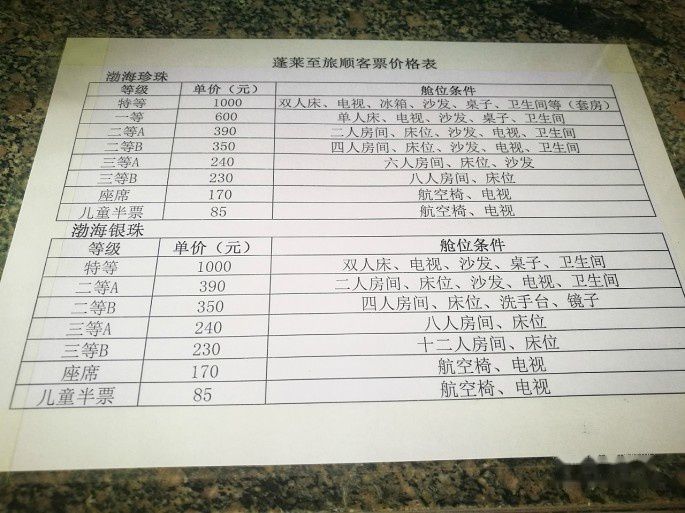 蓬莱至旅顺客票价格表
渤海珍珠
等级 单价（元） 舱位条件
特等 1000 双人床、电视、冰箱、沙发、桌子、卫生间等（套房）
一等 600 单人床、电视、沙发、桌子、卫生间
二等A 390 二人房间、床位、沙发、电视、卫生间
二等B 350 四人房间、床位、沙发、电视、卫生间
三等A 240 六人房间、床位、沙发
三等B 230 八人房间、床位
座席 170 航空椅、电视
儿童半票 85 航空椅、电视
渤海银珠
等级 单价（元） 舱位条件
特等 1000 双人床、电视、沙发、桌子、卫生间
二等A 390 二人房间、床位、沙发、电视、卫生间
二等B 350 四人房间、床位、洗手台、镜子
三等A 240 八人房间、床位
三等B 230 十二人房间、床位
座席 170 航空椅、电视
儿童半票 85 航空椅、电视